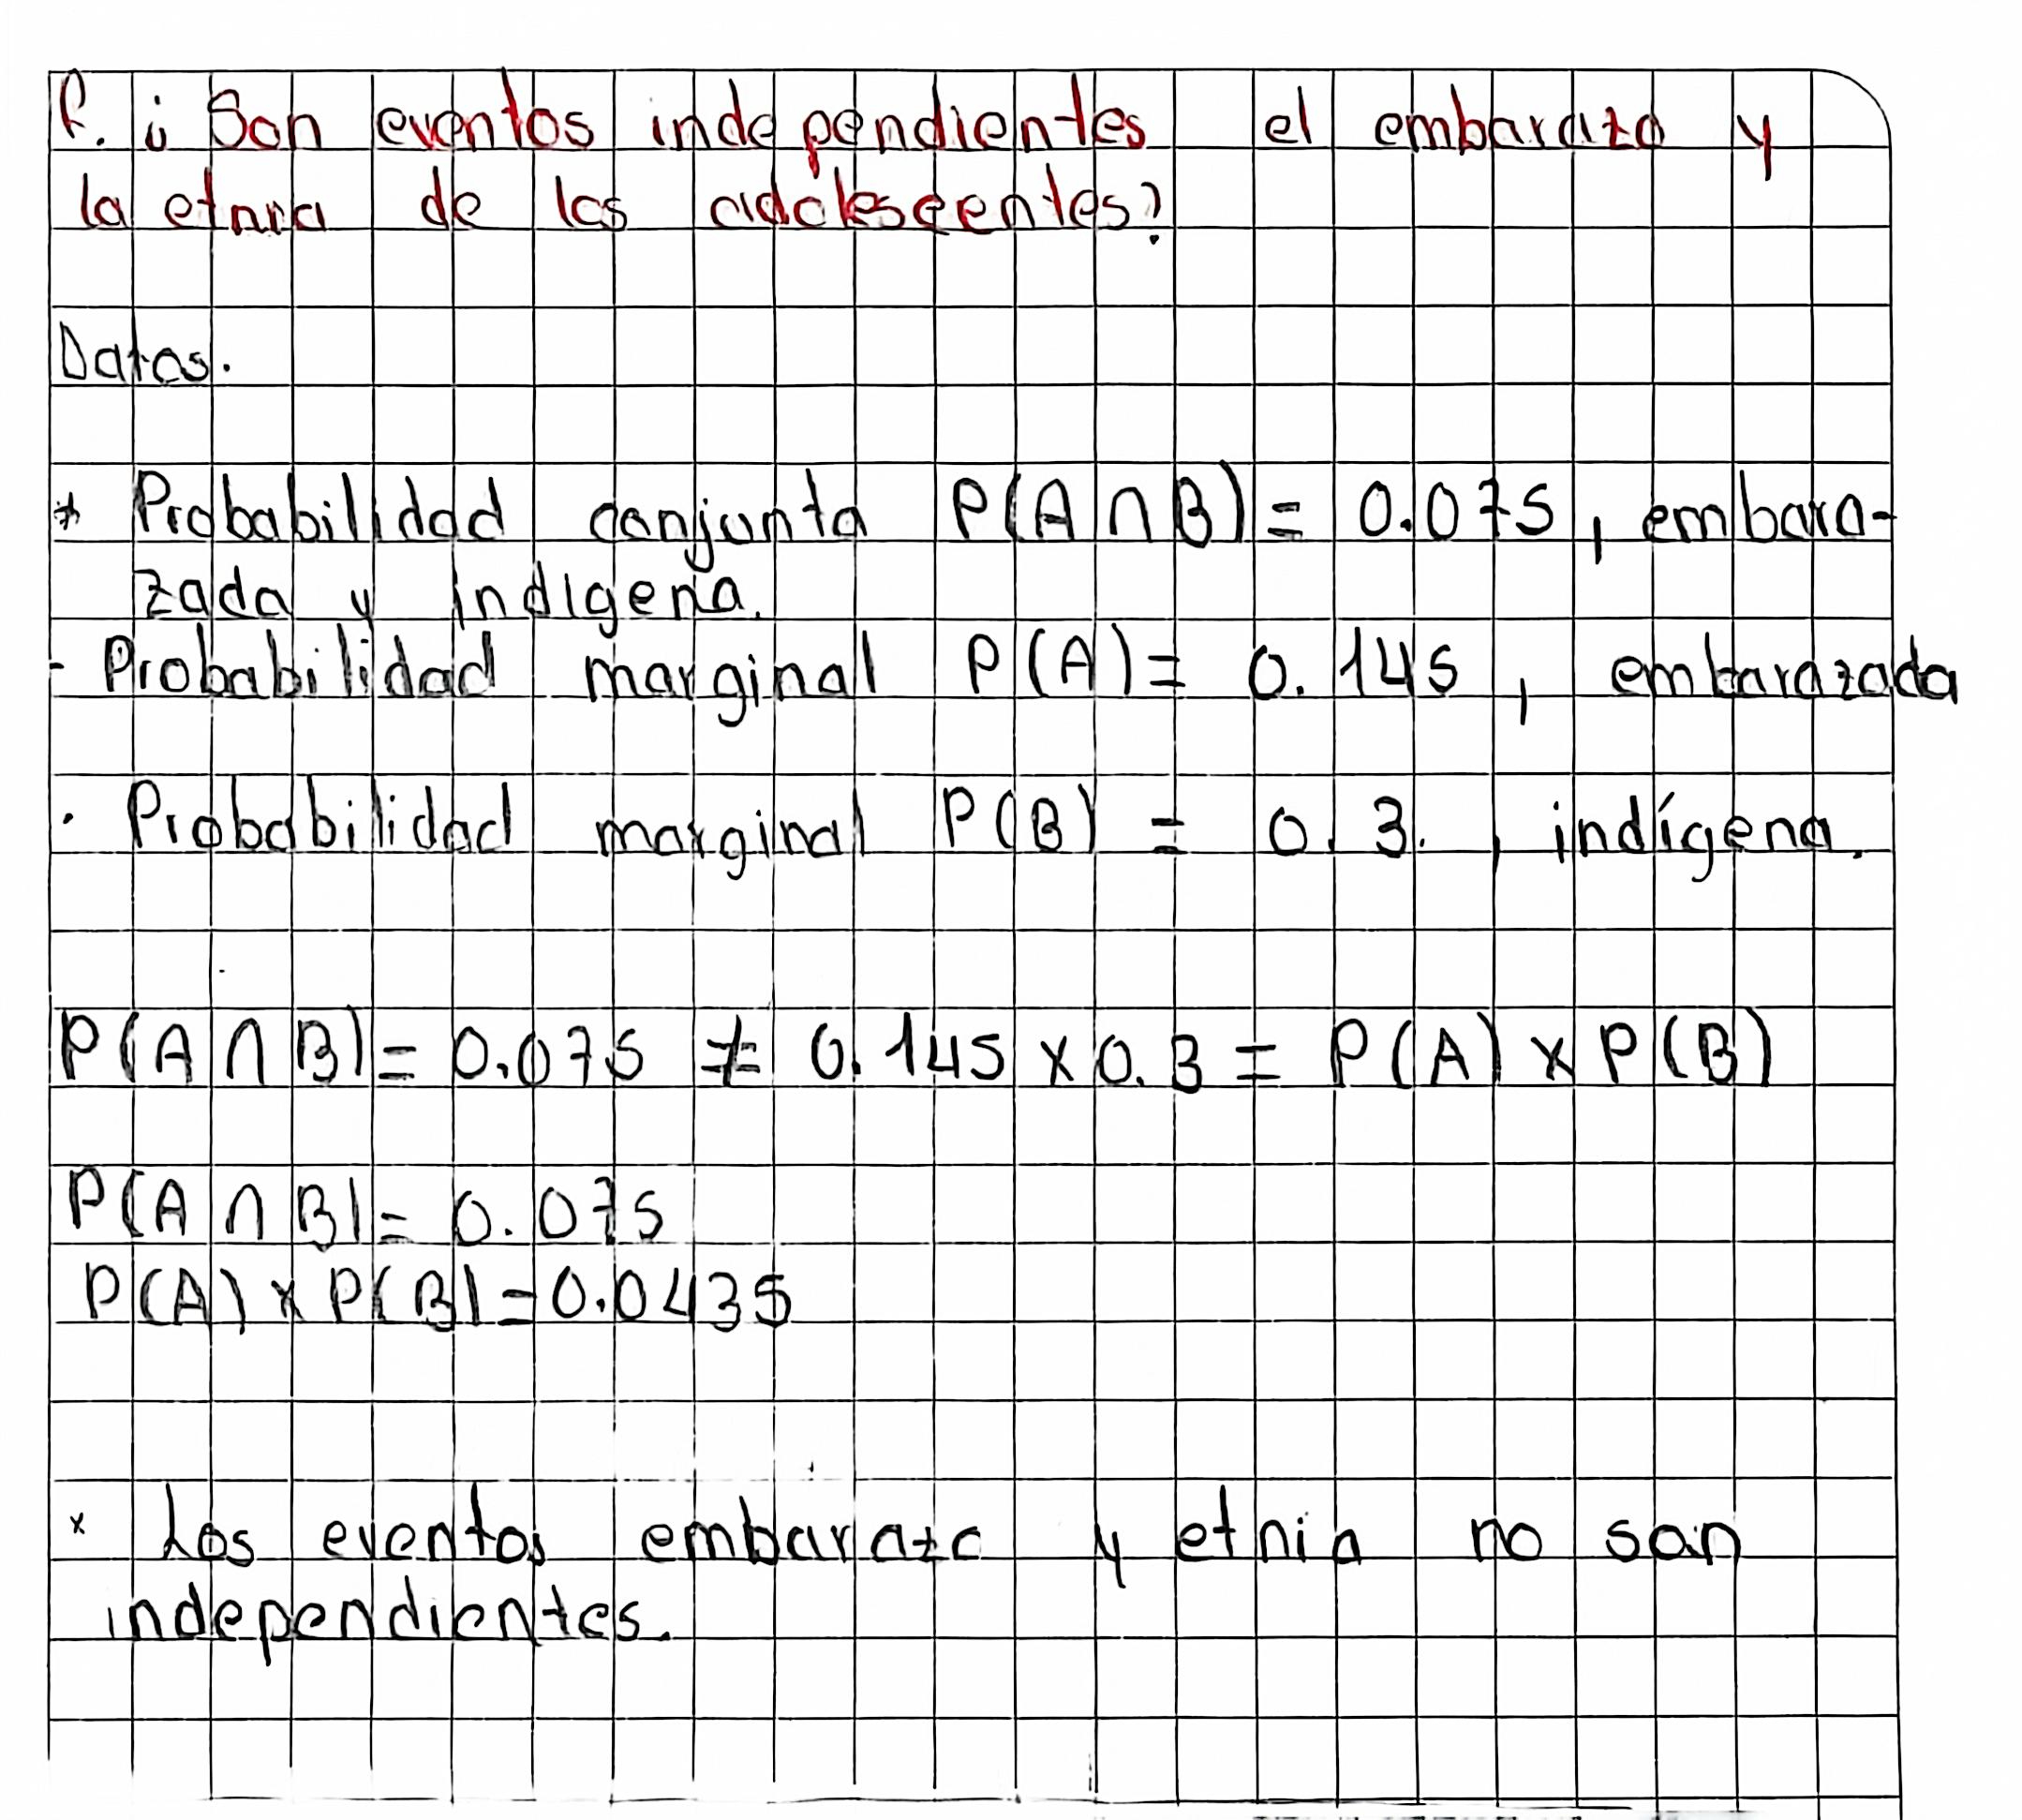 f. ¿ Son eventos independientes el embarazo y
la etnia de los adolescentes?
Datos.
* Probabilidad conjunta P(A ∩ B) = 0.075, embara-
zada y indigena.
- Probabilidad marginal P(A) = 0.145, embarazada
· Probabilidad marginal P(B) = 0.3., indígena.
P(A ∩ B) = 0.075 ≠ 0.145 x 0.3 = P(A) x P(B)
P(A ∩ B) = 0.075
P(A) x P(B) = 0.0435
x Los eventos embarazo y etnia no son
independientes.